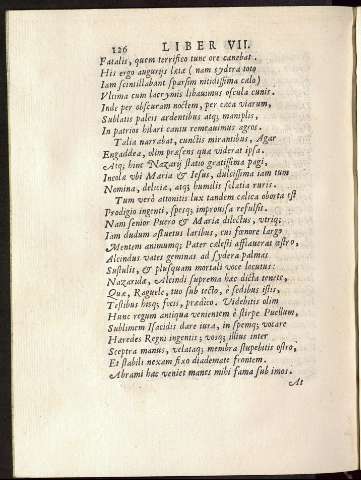 126 LIBER VII.
Fatalis, quem terrifico tunc ore canebat.
His ergo augurijs læta (nam sydera toto
Iam scintillabant sparsim nitidissima cælo)
Vltima cum lacrymis libauimus oscula cunis.
Inde per obscuram noctem, per cæca viarum,
Sublatis paleis ardentibus atq; maniplis,
In patrios hilari cantu remeauimus agros.
Talia narrabat, cunctis mirantibus, Agar
Engaddea, olim præsens quæ viderat ipsa.
Atq; hinc Nazarij statio gratissima pagi,
Incola vbi Maria & Iesus, dulcissima iam tum
Nomina, deliciæ, atq; humilis solatia ruris.
Tum verò attonitis lux tandem calica oborta est
Prodigio ingenti, spesq; improuisa refulsit.
Nam senior Puero & Mariæ dilectus, vtriq;
Iam dudum assuetus laribus, cui fœnore largo
Mentem animumq; Pater cælesti afflauerat œstro,
Alcindus vates geminas ad sydera palmas
Sustulit, & plusquam mortali voce locutus:
Nazarida, Alcindi suprema hæc dicta tenete,
Quæ, Raguele, tuo sub tecto, è sedibus istis,
Testibus hisq; focis, prædico. Videbitis olim
Hunc regum antiqua venientem è stirpe Puellum,
Sublimem Isacidis dare iura, in spemq; vocare
Hæredes Regni ingentis; vosq; illius inter
Sceptra manus, velataq; membra stupebitis ostro,
Et stabili nexam fixo diademate frontem.
Abrami hæc veniet manes mihi fama sub imos.
At